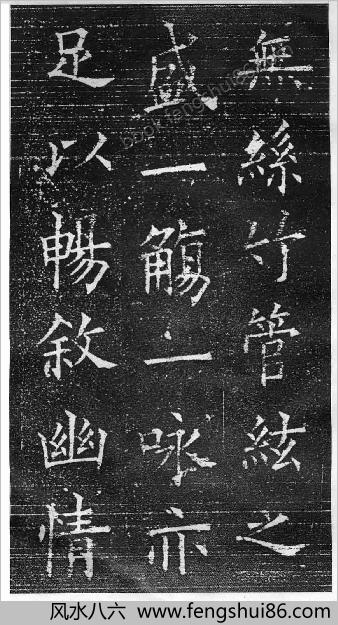 無絲竹管絃之
盛一觴一咏亦
足以暢敘幽情
book.fengshui86.com
风水八六 www.fengshui86.com